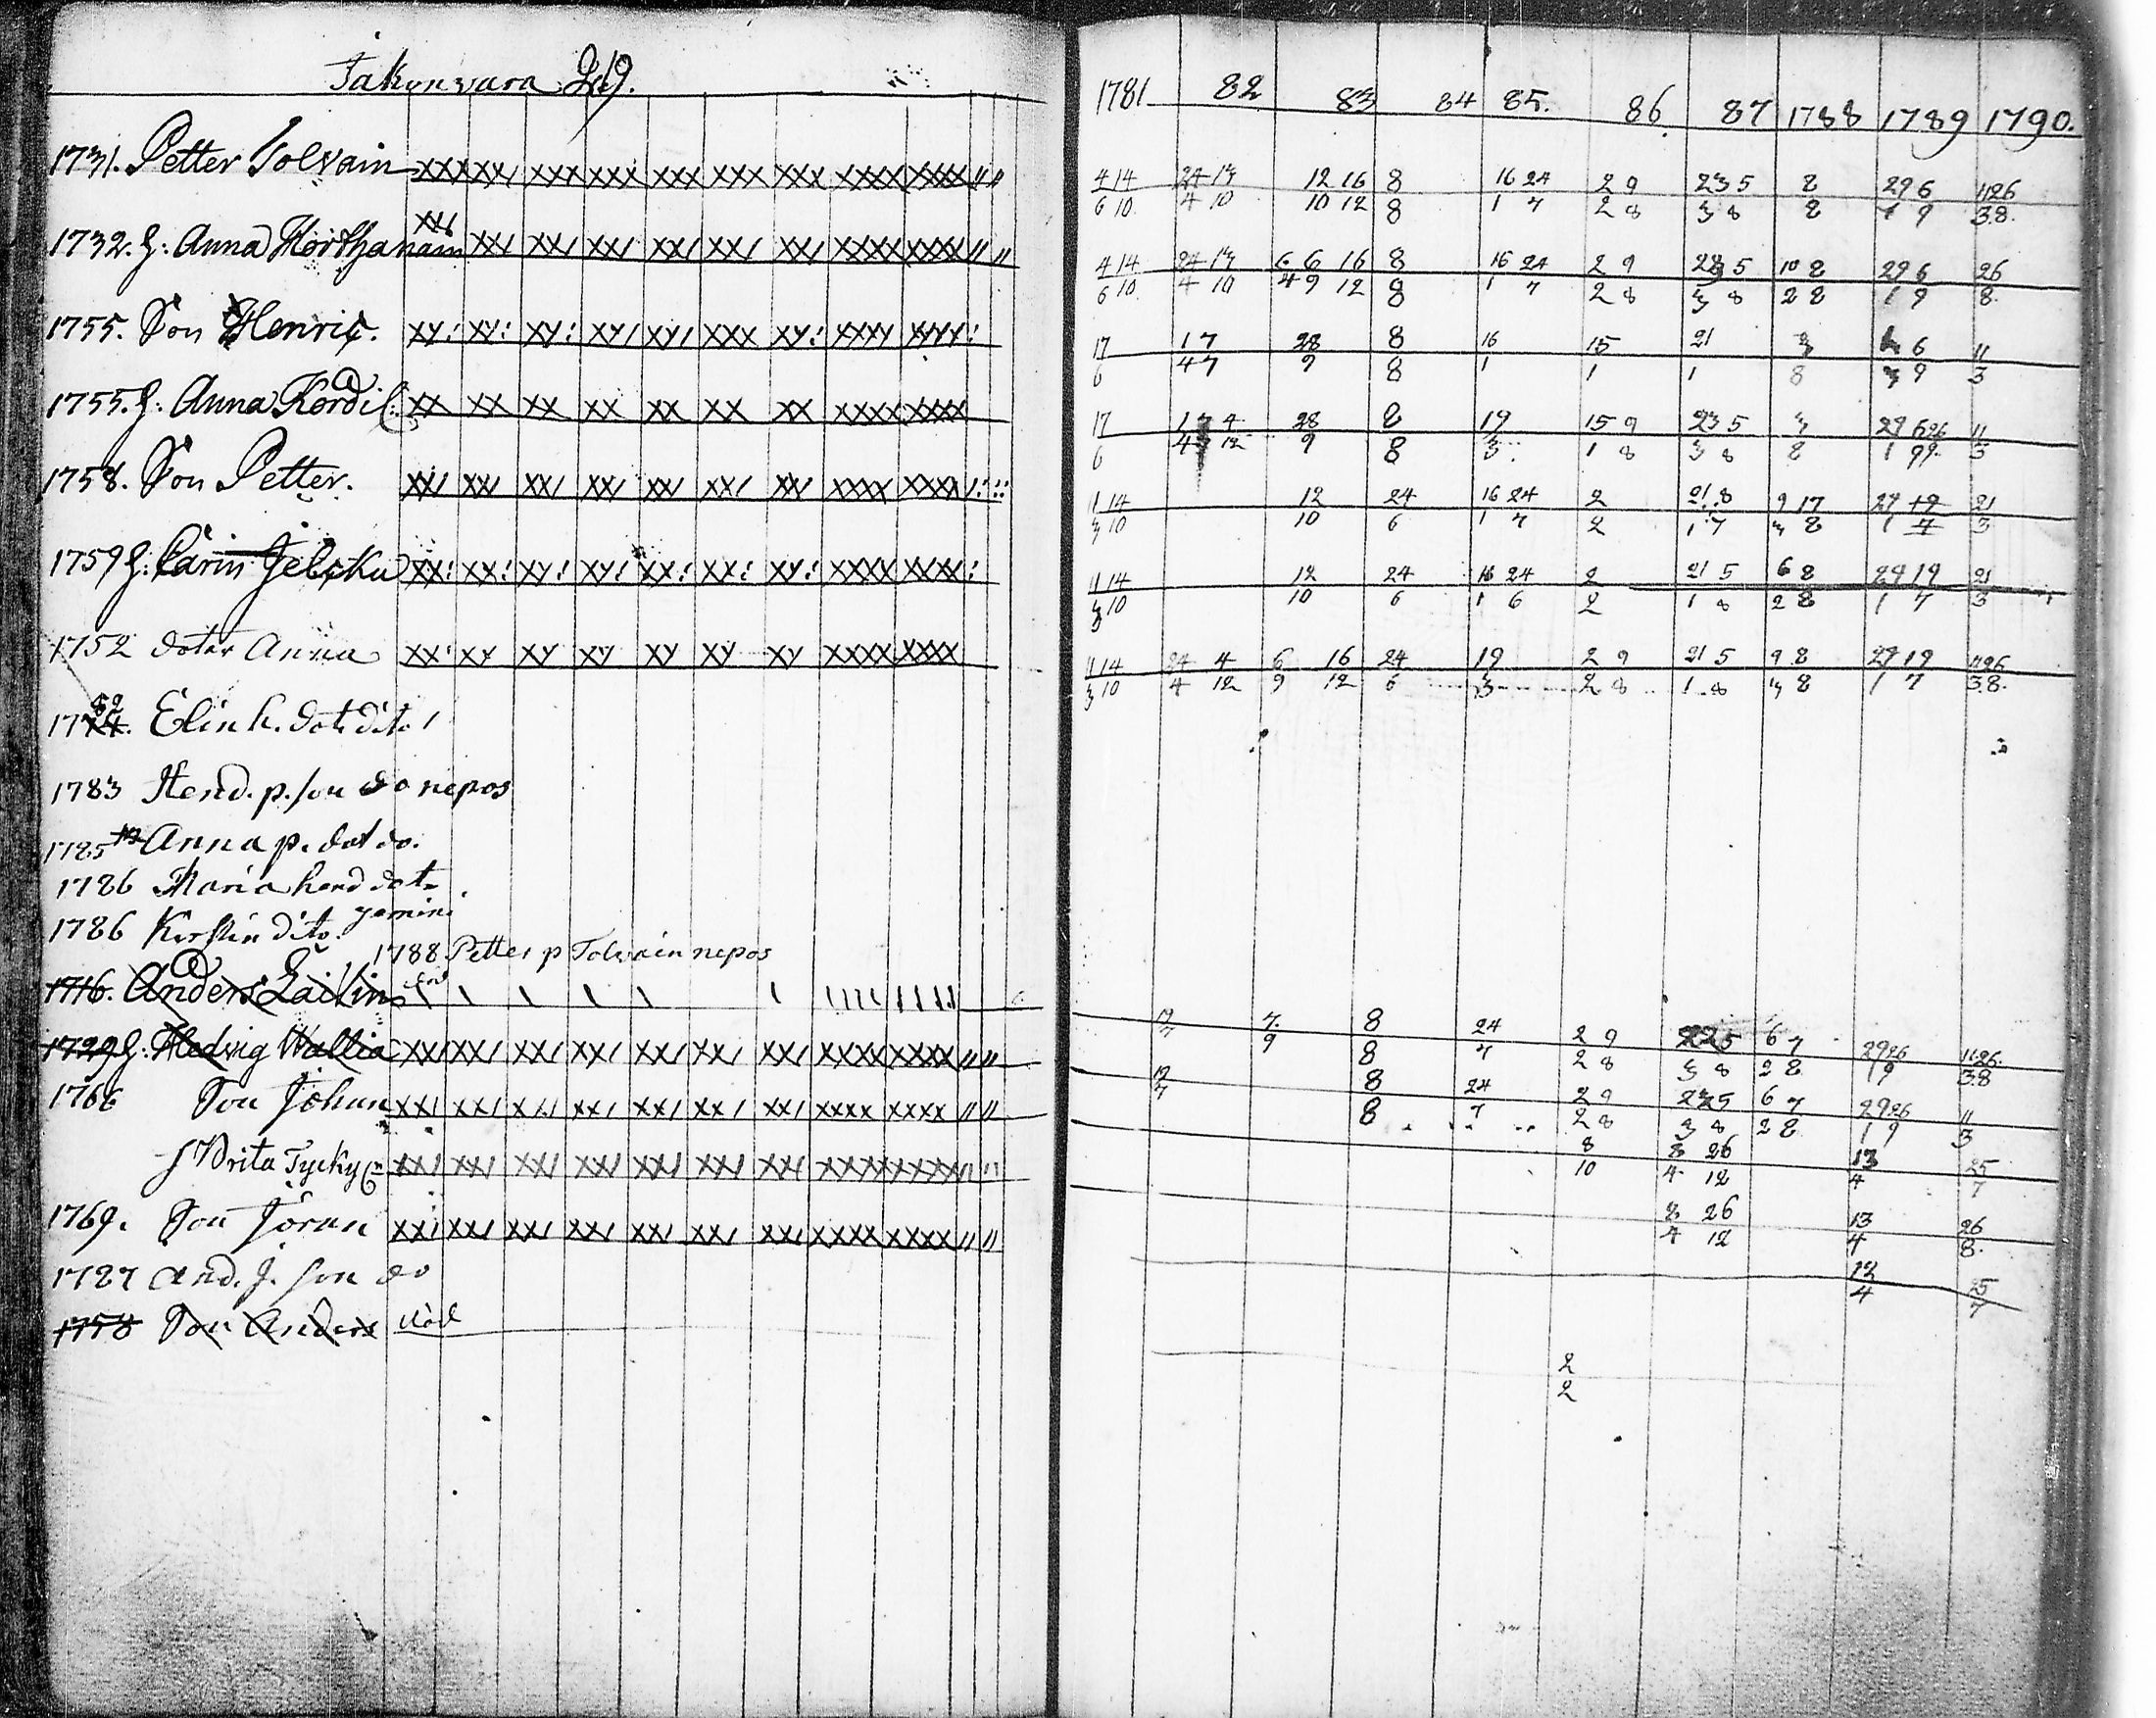 Jakonvara 249.
1731. Petter Tolvain
1732. H: Anna Hörthanain
1755. Son Henric.
1755. H: Anna Kordil:
1758. Son Petter.
1759 H: Carin
1752 dotter Anna
82
1774. Elin h. dot. dito 1
1783 Hend. p. son do nepos
1785 Anna p. dot do.
1786 Maria hend dotr
1786 Kirstin dito. gemini
1788 Petter p Tolvain nepos
1716. Anders Laikin
1729 H: Hedvig Wallia
1766 Son Johan
H Brita
1769. Son Jöran
1787 And. J. son do
1758 Son Anders död
1781 82 83 84 85. 86 87 1788 1789 1790.
4 14 24 13 12 16 8 16 24 2 9 23 5 8 29 6 11 26
6 10 4 10 10 12 8 1 7 2 8 3 8 8 1 9 3 8.
4 14 24 13 6 6 16 8 16 24 2 9 23 5 10 8 29 6 26
6 10 4 10 4 9 12 8 1 7 2 8 3 8 2 8 1 9 8.
17 17 28 8 16 15 21 6 11
6 47 9 8 1 1 1 8 9 3
17 17 4 28 8 19 15 9 23 5 29 6 26 11
6 12 9 8 3 1 8 3 8 8 1 9 9 3
11 14 12 24 16 24 2 21 8 9 17 29 19 21
3 10 10 6 1 7 2 1 7 3 8 1 7 3
11 14 12 24 16 24 2 21 5 6 8 29 19 21
3 10 10 6 1 6 2 1 8 2 8 1 7 3
11 14 24 4 6 16 24 19 2 9 21 5 9 8 29 19 11 26
3 10 4 12 9 12 6 3 2 8 1 8 3 8 1 7 3 8.
7 8 24 2 9 5 6 7 29 26 11 26
9 8 7 2 8 3 8 2 8 1 9 3 8
8 24 2 9 23 5 6 7 29 26 11
8 7 2 8 3 8 2 8 1 9 3
8 8 26 13 25
10 4 12 4 7
8 26 13 26
4 12 4 8.
12 25
4 7
2
2